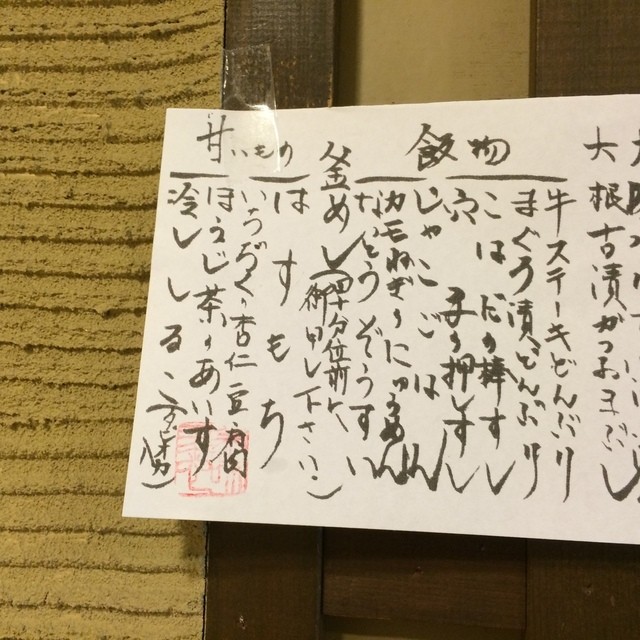 大根古漬かつおまぶし
飯物
牛ステーキどんぶり
まぐろ漬どんぶり
こはだの棒すし
の押しすし
じゃこごはん
カモねぎにゅうめん
なっとうぞうすい
釜めし(四十分位前に
御申し下さい)
甘いもの
はすもち
いちぢく杏仁豆腐
ほうじ茶のあいす
冷ししるこ